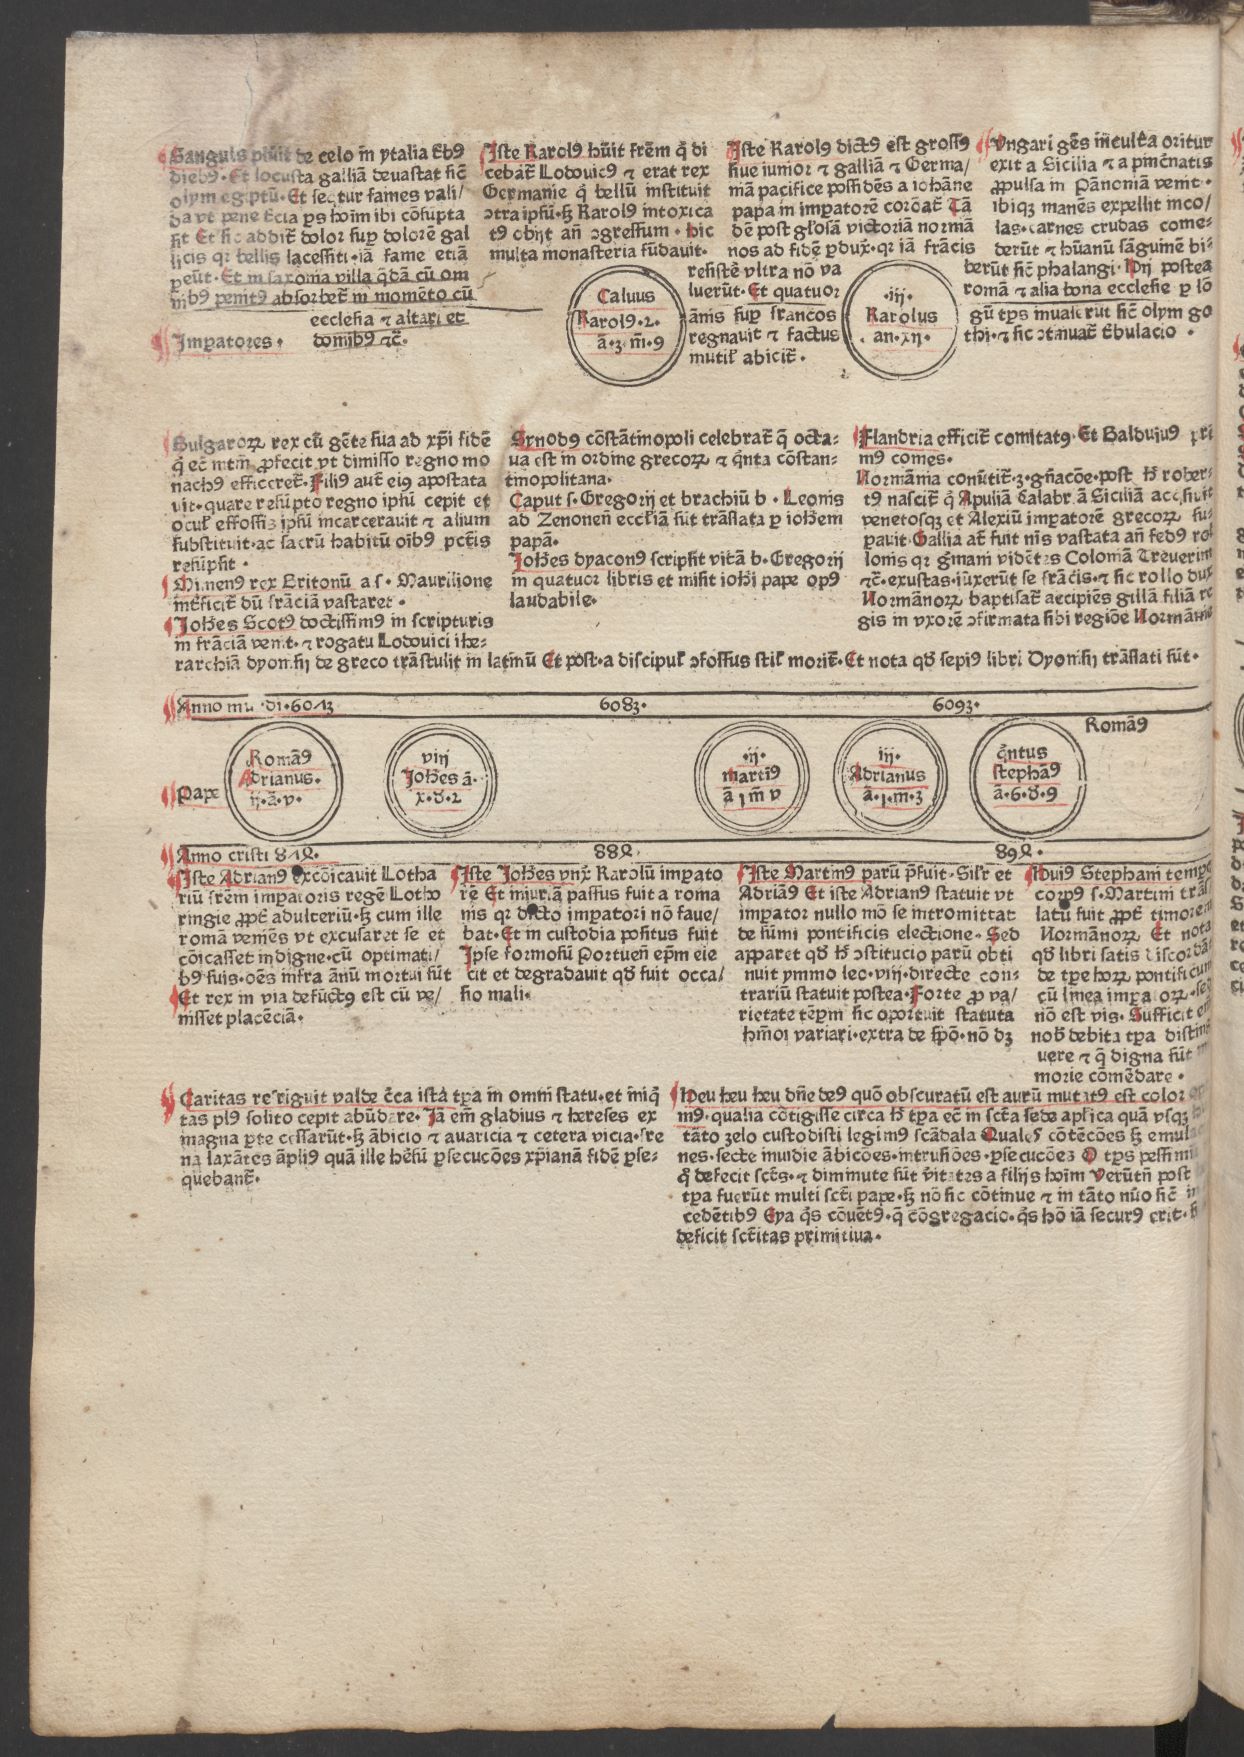 Sanguis pluit de celo in ytalia t̄bꝰ
diebꝰ · Et locusta galliā deuastat sic̄
olym egiptū · Et sequtur fames vali/
da vt pene t̄cia ps hoīm ibi cōsūpta
sit Et sic addit̄ dolor sup dolorē gal
licis qr bellis lacessiti · iā fame etiā
peūt · Et in saxonia villa q̄dā cū om
nibꝰ penitꝰ absorbet̄ in momēto cū
ecclesia ⁊ altari et
Impatores · domībꝰ ⁊c̄ ·
Iste Karolꝰ hūit frēm q̄ di
cebat̄ Lodouicꝰ ⁊ erat rex
Germanie q̄ bellū instituit
ↄtra ipsū · sꝫ Karolꝰ intoxica
tꝰ obijt an̄ ↄgressum · hic
multa monasteria fūdauit ·
Caluus
Karolꝰ · 2 ·
ā · 3 m̄ · 9
Iste Karolꝰ dictꝰ est grossꝰ
siue iunior ⁊ galliā ⁊ Germa/
niā pacifice possidēs a iohāne
papa in impatorē coroāt̄ Tā
dē post gl'osā victoriā normā
nos ad fidē pdux̄ · qr iā frācis
resistē vltra nō va
luerūt · Et quatuor
ānis sup francos
regnauit ⁊ factus
mutil' abicit̄ ·
·iij·
Karolus
an · xij ·
Vngari gēs inculta oritur
exit a Sicilia ⁊ a pincnatis
ꝓpulsa in Pānoniā venit ·
ibiqꝫ manēs expellit inco/
las · carnes crudas come⸗
derūt ⁊ hūanū sāguinē bi⸗
berūt sic̄ phalangi · Hij postea
romā ⁊ alia bona ecclesie p lō
gū tps inuaserūt sic̄ olym go
thi · ⁊ sic ↄtinuat̄ t̄bulacio ·
Bulgaroꝝ rex cū gēte sua ad xp̄i fidē
q̄ ec̄ intm̄ ꝓfecit vt dimisso regno mo
nachꝰ efficeret̄ · Filiꝰ aut̄ eiꝰ apostata
uit · quare resūpto regno ipsū cepit et
ocul' effossis ipsū incarcerauit ⁊ alium
substituit · ac sacrū habitū oībꝰ pct̄is
resūpsit ·
Himenꝰ rex Britonū a s · Maurilione
int̄ficit̄ dū frāciā vastaret ·
Joh̄es Scotꝰ doctissimꝰ in scripturis
in frāciā venit · ⁊ rogatu Lodouici ihe⸗
rarchiā dyonisij de greco trāstulit in latinū Et post · a discipul' ↄfossus stil' morit̄ · Et nota qd̄ sepiꝰ libri Dyonisij trāslati sūt ·
Synodꝰ cōstātinopoli celebrat̄ q̄ octa⸗
ua est in ordine grecoꝝ ⁊ q̄nta cōstan⸗
tinopolitana ·
Caput s · Gregorij et brachiū b · Leonis
ad Zenonen̄ eccl'iā sūt trāslata p ioh̄em
papā ·
Joh̄es dyaconꝰ scripsit vitā b · Gregorij
in quatuor libris et misit ioh̄i pape opꝰ
laudabile ·
Flandria efficit̄ comitatꝰ · Et Balduiuꝰ pri
mꝰ comes ·
Normānia conūtit̄ · 3 · gn̄acōe · post h̄ rober⸗
tꝰ nascit̄ q̄ Apuliā Calabriā Siciliā acqsiuit
venetosqꝫ et Alexiū impatorē grecoꝝ su⸗
pauit · Gallia at̄ fuit nīs vastata an̄ fedꝰ rol
lonis qr ḡmani vidētes Coloniā Treuerim
⁊c̄ · exustas · iūxerūt se frācis · ⁊ sic rollo dux
Normānoꝝ baptisat̄ accipiēs gillā filiā re
gis in vxorē ↄfirmata sibi regiōe Normānie
Anno mundi · 6073 · 6083 · 6093 ·
Pape
Romāꝰ
Adrianus ·
ij · ā · v ·
viij
Joh̄es ā ·
x · d̄ · 2
·ij·
martīꝰ
ā j m̄ v
iij ·
Adrianus
ā · j · m · 3
q̄ntus
stephāꝰ
ā · 6 · d̄ · 9
Romāꝰ
Anno cristi 874 · 884 · 894 ·
Iste Adrianꝰ excōicauit Lotha
riū frēm impatoris regē Lotho
ringie ꝓpt̄ adulteriū · sꝫ cum ille
romā veniēs vt excusaret se et
cōicasset indigne · cū optimati/
bꝰ suis · oēs infra ānū mortui sūt
Et rex in via defūctꝰ est cū ve/
nisset placēciā ·
Iste Joh̄es vnx̄ Karolū impato
rē Et iniuriā passus fuit a roma
nis qr dicto impatori nō faue/
bat · Et in custodia positus fuit
Ipse formosū Portuen̄ ep̄m eie
cit et degradauit qd̄ fuit occa/
sio mali ·
Iste Martinꝰ parū p̄fuit · Sil'r et
Adriāꝰ Et iste Adrianꝰ statuit vt
impator nullo mō se intromittat
de sūmi pontificis electione · Sed
apparet qd̄ h̄ ↄstitucio parū obti
nuit ymmo leo · viij · directe con⸗
trariū statuit postea · Forte ꝓ va/
rietate tēpm̄ sic oportuit statuta
hm̄oi variari · extra de sp̄o · nō dꝫ
Huiꝰ Stephani tempe
corpꝰ s · Martini trās
latū fuit ꝓpt̄ timorem
Normānoꝝ Et nota
qd̄ libri satis discordāt
de tpe hoꝝ pontificum
cū linea impatoꝝ · sed
nō est vis · Sufficit em̄
nob̄ debita tpa distin
uere ⁊ q̄ digna sūt m
morie cōmēdare ·
Caritas refriguit valde c̄ca istā tpa in omni statu · et iniq̄
tas plꝰ solito cepit abūdare · Jā em̄ gladius ⁊ hereses ex
magna pte cessarūt · sꝫ ābicio ⁊ auaricia ⁊ cetera vicia · fre
na laxātes āpliꝰ quā ille hēsū psecucōes xp̄ianā fidē pse⸗
quebant̄ ·
Heu heu heu dn̄e deꝰ quō obscuratū est aurū mutatꝰ est color op
mꝰ · qualia cōtigisse circa h̄ tpa ec̄ in sct̄a sede aplica quā vsqꝫ
tāto zelo custodisti legimꝰ scādala Quales cōtēcōes sꝫ emula
nes · secte inuidie ābicōes · intrusiōes · psecucōes O tps pessimū
q̄ defecit sct̄s · ⁊ diminute sūt v̄itates a filijs hoīm Verūtn̄ post
tpa fuerūt multi sct̄i pape · sꝫ nō sic cōtinue ⁊ in tāto nūo sic̄ in
cedētibꝰ Eya q̄s cōuētꝰ · q̄ cōgregacio · q̄s hō iā securꝰ erit ·
deficit sct̄itas primitiua ·